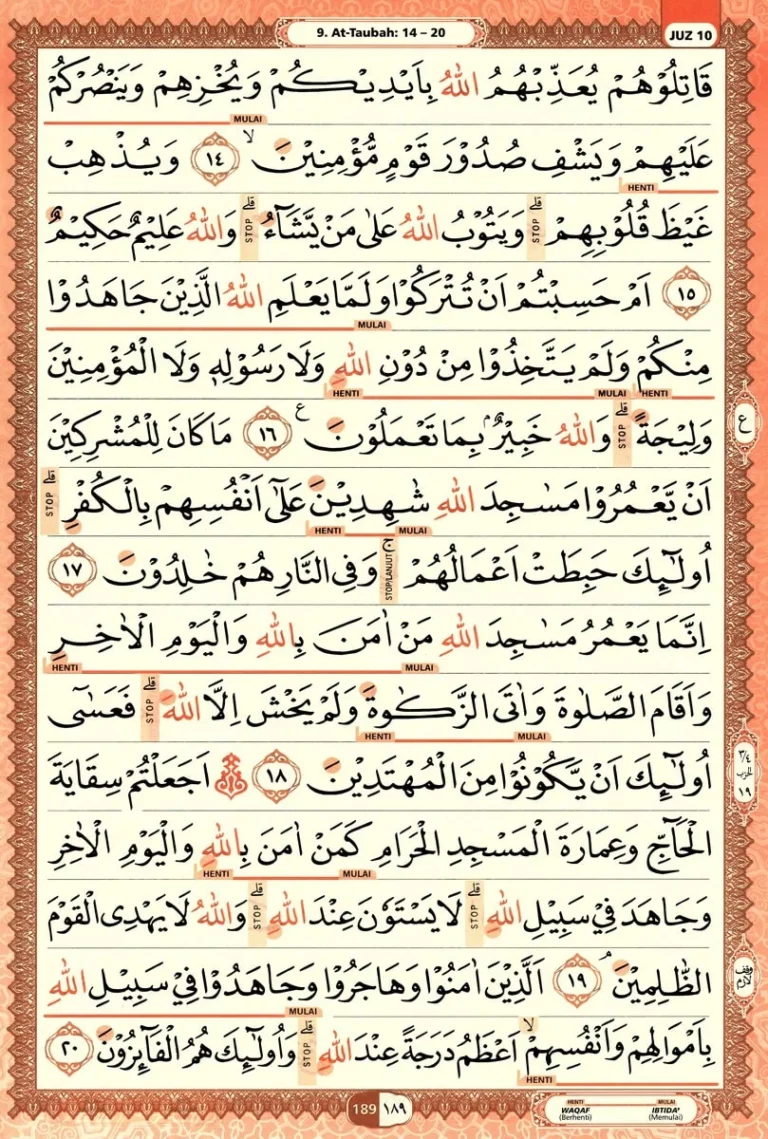 9. At-Taubah: 14 – 20
JUZ 10
قَاتِلُوْهُمْ يُعَذِّبْهُمُ اللّٰهُ بِاَيْدِيْكُمْ وَيُخْزِهِمْ وَيَنْصُرْكُمْ
MULAI
عَلَيْهِمْ وَيَشْفِ صُدُوْرَ قَوْمٍ مُّؤْمِنِيْنَۙ ١٤ وَيُذْهِبْ
HENTI
غَيْظَ قُلُوْبِهِمْۗ STOP وَيَتُوْبُ اللّٰهُ عَلٰى مَنْ يَّشَاۤءُۗ STOP وَاللّٰهُ عَلِيْمٌ حَكِيْمٌ
١٥ اَمْ حَسِبْتُمْ اَنْ تُتْرَكُوْا وَلَمَّا يَعْلَمِ اللّٰهُ الَّذِيْنَ جَاهَدُوْا
MULAI
مِنْكُمْ وَلَمْ يَتَّخِذُوْا مِنْ دُوْنِ اللّٰهِ وَلَا رَسُوْلِهٖ وَلَا الْمُؤْمِنِيْنَ
HENTI MULAI HENTI
وَلِيْجَةًۗ STOP وَاللّٰهُ خَبِيْرٌۢ بِمَا تَعْمَلُوْنَ ع ١٦ مَا كَانَ لِلْمُشْرِكِيْنَ
ع
اَنْ يَّعْمُرُوْا مَسٰجِدَ اللّٰهِ شٰهِدِيْنَ عَلٰٓى اَنْفُسِهِمْ بِالْكُفْرِۗ STOP
MULAI HENTI
اُولٰۤىِٕكَ حَبِطَتْ اَعْمَالُهُمْۚ STOP/LANJUT وَفِى النَّارِ هُمْ خٰلِدُوْنَ ١٧
اِنَّمَا يَعْمُرُ مَسٰجِدَ اللّٰهِ مَنْ اٰمَنَ بِاللّٰهِ وَالْيَوْمِ الْاٰخِرِ
MULAI HENTI
وَاَقَامَ الصَّلٰوةَ وَاٰتَى الزَّكٰوةَ وَلَمْ يَخْشَ اِلَّا اللّٰهَۗ STOP فَعَسٰٓى
MULAI HENTI
٣/٤
الحزب
١٩
اُولٰۤىِٕكَ اَنْ يَّكُوْنُوْا مِنَ الْمُهْتَدِيْنَ ١٨ ۞ اَجَعَلْتُمْ سِقَايَةَ
الْحَاۤجِّ وَعِمَارَةَ الْمَسْجِدِ الْحَرَامِ كَمَنْ اٰمَنَ بِاللّٰهِ وَالْيَوْمِ الْاٰخِرِ
MULAI HENTI
وَجَاهَدَ فِيْ سَبِيْلِ اللّٰهِۗ STOP لَا يَسْتَوٗنَ عِنْدَ اللّٰهِۗ STOP وَاللّٰهُ لَا يَهْدِى الْقَوْمَ
وقف
لازم
الظّٰلِمِيْنَۘ ١٩ اَلَّذِيْنَ اٰمَنُوْا وَهَاجَرُوْا وَجَاهَدُوْا فِيْ سَبِيْلِ اللّٰهِ
MULAI
بِاَمْوَالِهِمْ وَاَنْفُسِهِمْۙ اَعْظَمُ دَرَجَةً عِنْدَ اللّٰهِۗ STOP وَاُولٰۤىِٕكَ هُمُ الْفَاۤىِٕزُوْنَ ٢٠
HENTI
189 ١٨٩
HENTI MULAI
WAQAF IBTIDA'
(Berhenti) (Memulai)